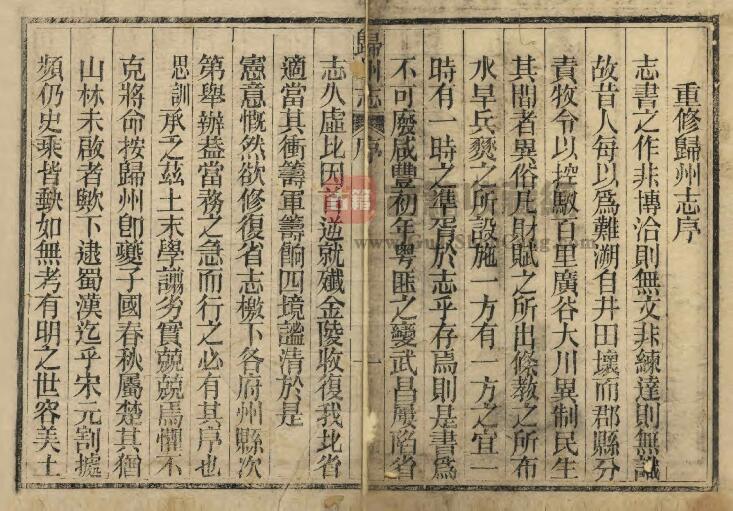 重修歸州志序
志書之作非博洽則無文非練達則無識
故昔人每以為難溯自井田壞而郡縣分
責牧令以控馭百里廣谷大川異制民生
其間者異俗凡財賦之所出條教之所布
水旱兵燹之所設施一方有一方之宜一
時有一時之準胥於志乎存焉則是書為
不可廢咸豐初年粵匪之變武昌屢陷省
歸州志 序 一
志久虛比因首逆就殲金陵收復我北省
適當其衝籌軍籌餉四境謐清於是
憲意慨然欲修復省志檄下各府州縣次
第舉辦葢當務之急而行之必有其序也
思訓承之茲土末學譾劣實兢兢焉懼不
克將命按歸州卽夔子國春秋屬楚其猶
山林未啟者歟下逮蜀漢迄乎宋元割據
頻仍史乘皆缺如無考有明之世容美土